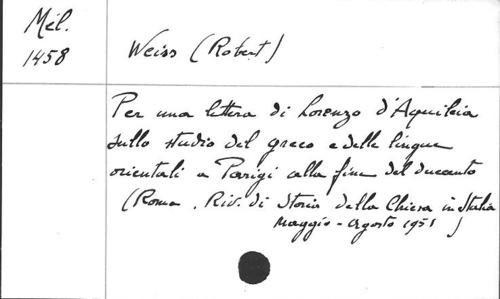 Mél.
1458
Weiss (Robert)
Per una lettera di Lorenzo d'Aquileia
sullo studio del greco e delle lingue
orientali a Parigi alla fine del ducento
(Roma, Riv. di Storia della Chiesa in Italia
Maggio - Agosto 1951)